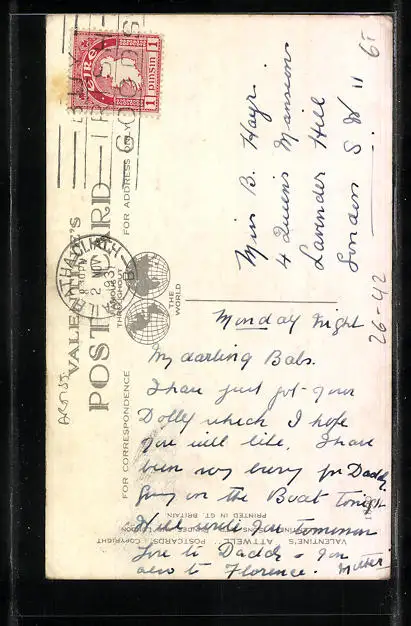 ÉIRE
1 PINSIN 1
BAILE ATHA CLIATH
2 NOV
193
GOODS
ARTIST
VALENTINE'S
POST CARD
THROUGHOUT
THE
WORLD
FOR CORRESPONDENCE
FOR ADDRESS ONLY
Miss B. Hayr.
4 Queens Mansions
Lavender Hill
London S W 11
65
26-42
Monday Night
My darling Babs.
I have just got your
Dolly which I hope
you will like. I have
been very busy for Daddy
on the Boat tonight
Will write you tomorrow
Love to Daddy & you
also to Florence. Mother
VALENTINE'S "ATTWELL" POSTCARDS. COPYRIGHT
PRINTED IN GT. BRITAIN.